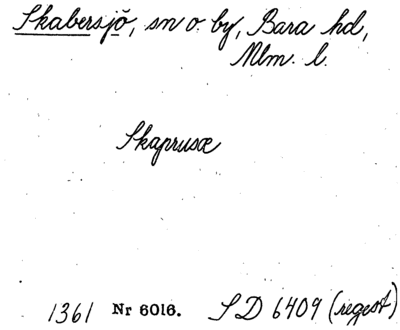 Skabersjö, sn o. by, Bara hd,
Mlm. l.
Skaprusæ
1361 Nr 6016. SD 6409 (regest)